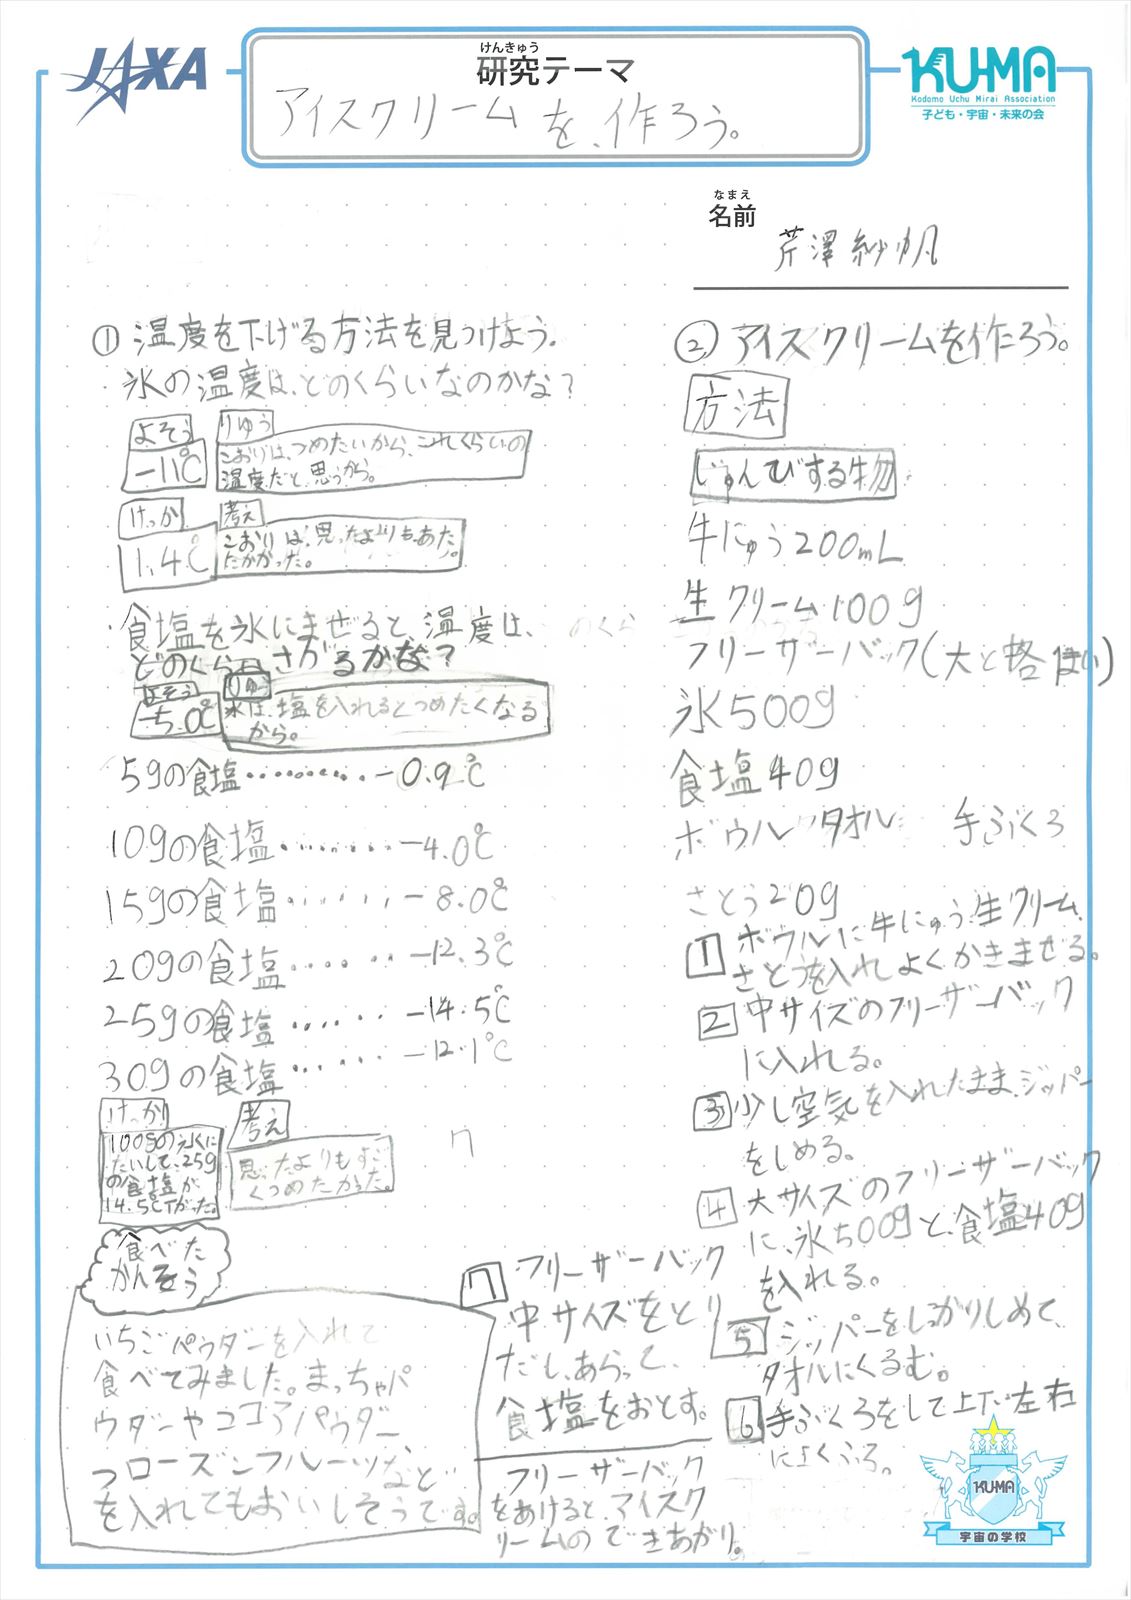 JAXA
けんきゅう
研究テーマ
アイスクリームを、作ろう。
KU-MA
Kodomo Uchu Mirai Association
子ども・宇宙・未来の会
なまえ
名前
芹澤紗帆
①温度を下げる方法を見つけよう。
氷の温度は、どのくらいなのかな?
よそう
-11℃
りゆう
こおりは、つめたいから、これくらいの
温度だと、思うから。
けっか
1.4℃
考え
こおりは、思ったよりも、あた
たかかった。
食塩を氷にまぜると、温度は、
どのくらいさがるかな?
よそう
-5.0℃
りゆう
氷は、塩を入れるとつめたくなる
から。
5gの食塩・・・・・・・・・-0.9℃
10gの食塩・・・・・・・・-4.0℃
15gの食塩・・・・・・・-8.0℃
20gの食塩・・・・・・・-12.3℃
25gの食塩・・・・・・-14.5℃
30gの食塩・・・・・・-12.1℃
けっか
100gの氷に
たいして、25g
の食塩が
14.5℃下がった。
考え
思ったよりもすご
くつめたかった。
食べた
かんそう
いちごパウダーを入れて
食べてみました。まっちゃパ
ウダーやココアパウダー
フローズンフルーツなど
を入れてもおいしそうです。
②アイスクリームを作ろう。
方法
じゅんびする物
牛にゅう200mL
生クリーム100g
フリーザーバック(大と
氷500g
食塩40g
ボウル タオル 手ぶくろ
さとう20g
1 ボウルに牛にゅう、生クリーム、
さとうを入れよくかきまぜる。
2 中サイズのフリーザーバック
に入れる。
3 少し空気を入れたまま、ジッパー
をしめる。
4 大サイズのフリーザーバック
に、氷500gと、食塩40g
を入れる。
5 ジッパーをしっかりしめて、
タオルにくるむ。
6 手ぶくろをして上下左右
によくふる。
7 フリーザーバック
中サイズをとり
だし、あらって、
食塩をおとす。
フリーザーバック
をあけると、アイスク
リームのできあがり。
KU-MA
宇宙の学校